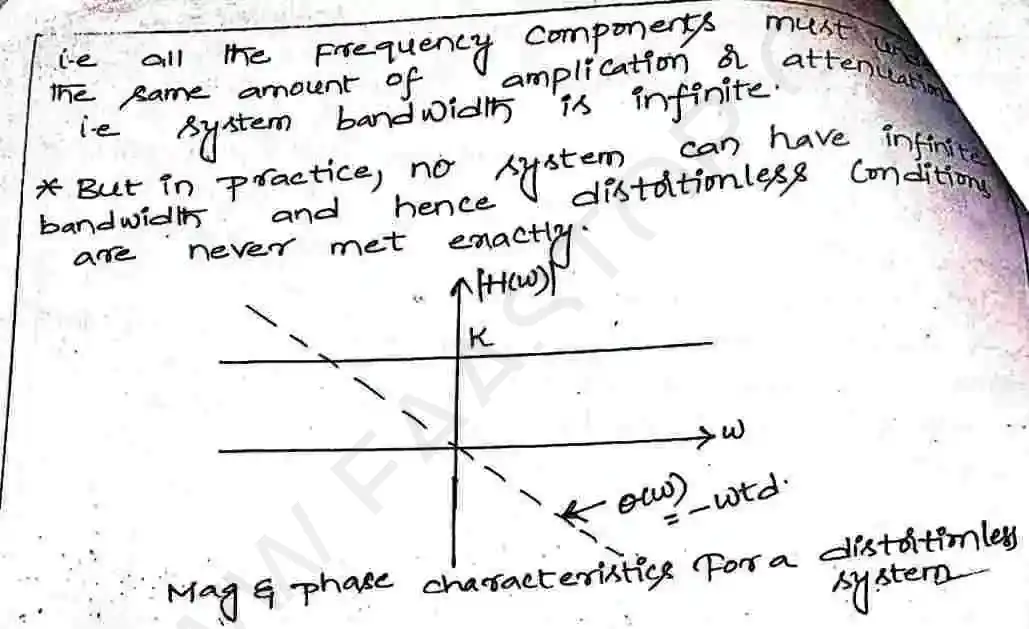 i.e all the Frequency Components must
the same amount of amplication & attenuation
i.e system bandwidth is infinite.
* But in practice, no system can have infinite
bandwidth and hence distortionless Conditions
are never met exactly.
|H(w)|
K
w
θ(w)
= -wtd.
Mag & phase characteristics For a distortionless
system